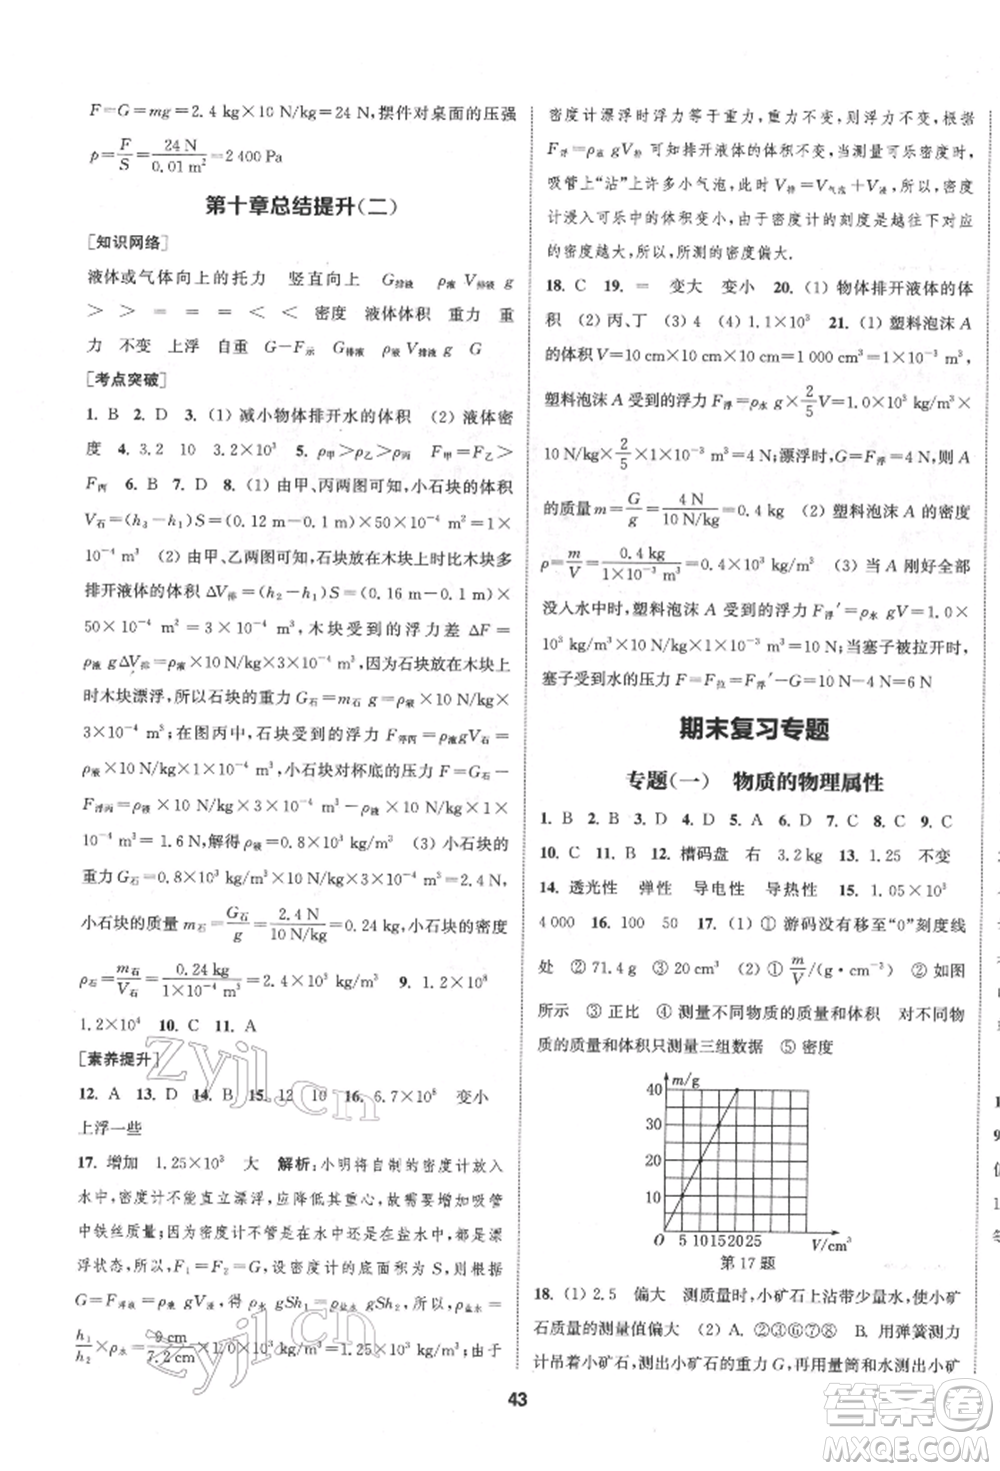 F=G=mg=2.4 kg×10 N/kg=24 N,摆件对桌面的压强
p=F/S=24 N/0.01 m²=2 400 Pa
第十章总结提升(二)
[知识网络]
液体或气体向上的托力 竖直向上 G排液 ρ液 V排液 g
> > = = = < < 密度 液体体积 重力 重
力 不变 上浮 自重 G-F示 G排液 ρ液 V排液 g G
[考点突破]
1. B 2. D 3. (1) 减小物体排开水的体积 (2) 液体密
度 4. 3.2 10 3.2×10³ 5. ρ甲>ρ乙>ρ丙 F甲=F乙>
F丙 6. B 7. B 8. (1) 由甲、丙两图可得,小石块的体积
V石=(h₃-h₁)S=(0.12 m-0.10 m)×50×10⁻⁴ m²=1×
10⁻⁴ m³ (2) 由甲、乙两图可得:石块放在木块上时比木块多
排开液体的体积 ΔV排=(h₂-h₁)S=(0.16 m-0.10 m)×
50×10⁻⁴ m²=3×10⁻⁴ m³,木块受到的浮力差 ΔF=
ρ液 gΔV排=ρ液×10 N/kg×3×10⁻⁴ m³,因为石块放木块上
时木块漂浮,所以石块的重力 G石=m石 g=ρ液×10 N/kg×
3×10⁻⁴ m³,在图丙中,石块受到的浮力 F浮丙=ρ液gV石=
ρ液×10 N/kg×1×10⁻⁴ m³,石块对杯底的压力 F=G石-
F浮丙=ρ液×10 N/kg×3×10⁻⁴ m³-ρ液×10 N/kg×1×
10⁻⁴ m³=1.6 N,解得 ρ液=0.8×10³ kg/m³ (3) 小石块的
重力 G石=0.8×10³ kg/m³×10 N/kg×3×10⁻⁴ m³=2.4 N,
小石块的质量 m石=G石/g=2.4 N/10 N/kg=0.24 kg,小石块的密度
ρ石=m石/V石=0.24 kg/1×10⁻⁴ m³=2.4×10³ kg/m³ 9. 1.2×10⁸
1.2×10⁴ 10. C 11. A
[素养提升]
12. A 13. D 14. B 15. 12 10 16. 6.7×10⁸ 变小
上浮一些
17. 增加 1.25×10³ 大 解析:小明将自制的密度计放入
水中,密度计不能直立漂浮,应降低其重心,故需要增加吸管
中铁丝质量;因为密度计不管是在水中还是在盐水中,都是漂
浮状态,所以 F₁=F₂=G,设密度计底面积为 S,由阿基米德原
理 F浮=G排液=ρ液gV浸,得 ρ水 gSh₁=ρ盐水gSh₂,所以 ρ盐水=
h₁/h₂×ρ水=9 cm/7.2 cm×1.0×10³ kg/m³=1.25×10³ kg/m³;由于
密度计漂浮时浮力等于重力,重力不变,所以浮力不变,根据
F浮=ρ液 gV排 可知排开液体的体积不变,当测量可乐密度时,
吸管上“沾”上许多小气泡,此时 V排=V气泡+V浸,所以,密度
计浸入可乐中的体积变小,由于密度计的刻度是越往下对应
的密度越大,所以,所测的密度偏大.
18. C 19. = 变大 变小 20. (1) 物体排开液体的体
积 (2) 丙、丁 (3) 4 (4) 1.1×10³ 21. (1) 塑料泡沫 A
的体积 V=10 cm×10 cm×10 cm=1 000 cm³=1×10⁻³ m³,
塑料泡沫 A 受到的浮力 F浮=ρ水 g×2/5V=1.0×10³ kg/m³×
10 N/kg×2/5×1×10⁻³ m³=4 N;漂浮时,G=F浮=4 N,所以 A
的质量 m=G/g=4 N/10 N/kg=0.4 kg (2) 塑料泡沫 A 的密度
ρ=m/V=0.4 kg/1×10⁻³ m³=0.4×10³ kg/m³ (3) 当 A 刚好全部
没入水中时,塑料泡沫 A 受到的浮力 F浮′=ρ水 gV=1.0×
10³ kg/m³×10 N/kg×1×10⁻³ m³=10 N;当塞子被拉开时,
塞子受到水的压力 F=F拉=F浮′-G=10 N-4 N=6 N
期末复习专题
专题(一) 物质的物理属性
1. B 2. B 3. D 4. D 5. A 6. D 7. C 8. C 9. C
10. C 11. B 12. 槽码盘 右 3.2 kg 13. 1.25 不变
14. 透光性 弹性 导电性 导热性 15. 1.05×10³
4 000 16. 100 50 17. (1) ① 游码没有移至“0”刻度线
处 ② 71.4 g ③ 20 cm³ (2) ① m/V/(g·cm⁻³) ② 如图
所示 ③ 正比 ④ 测量不同物质的质量和体积 对不同物
质的质量和体积只测量三组数据 ⑤ 密度
m/g
40
30
20
10
O 5 10 15 20 25 V/cm³
第 17 题
18. (1) 2.5 偏大 测质量时,小矿石上沾带少量水,使小矿
石质量的测量值偏大 (2) A. ②③⑥⑦⑧ B. 用弹簧测力
计吊着小矿石,测出小矿石的重力 G,再用量筒和水测出小矿
43
zyjl.cn
zyjl.cn
答案圈
MXQE.COM